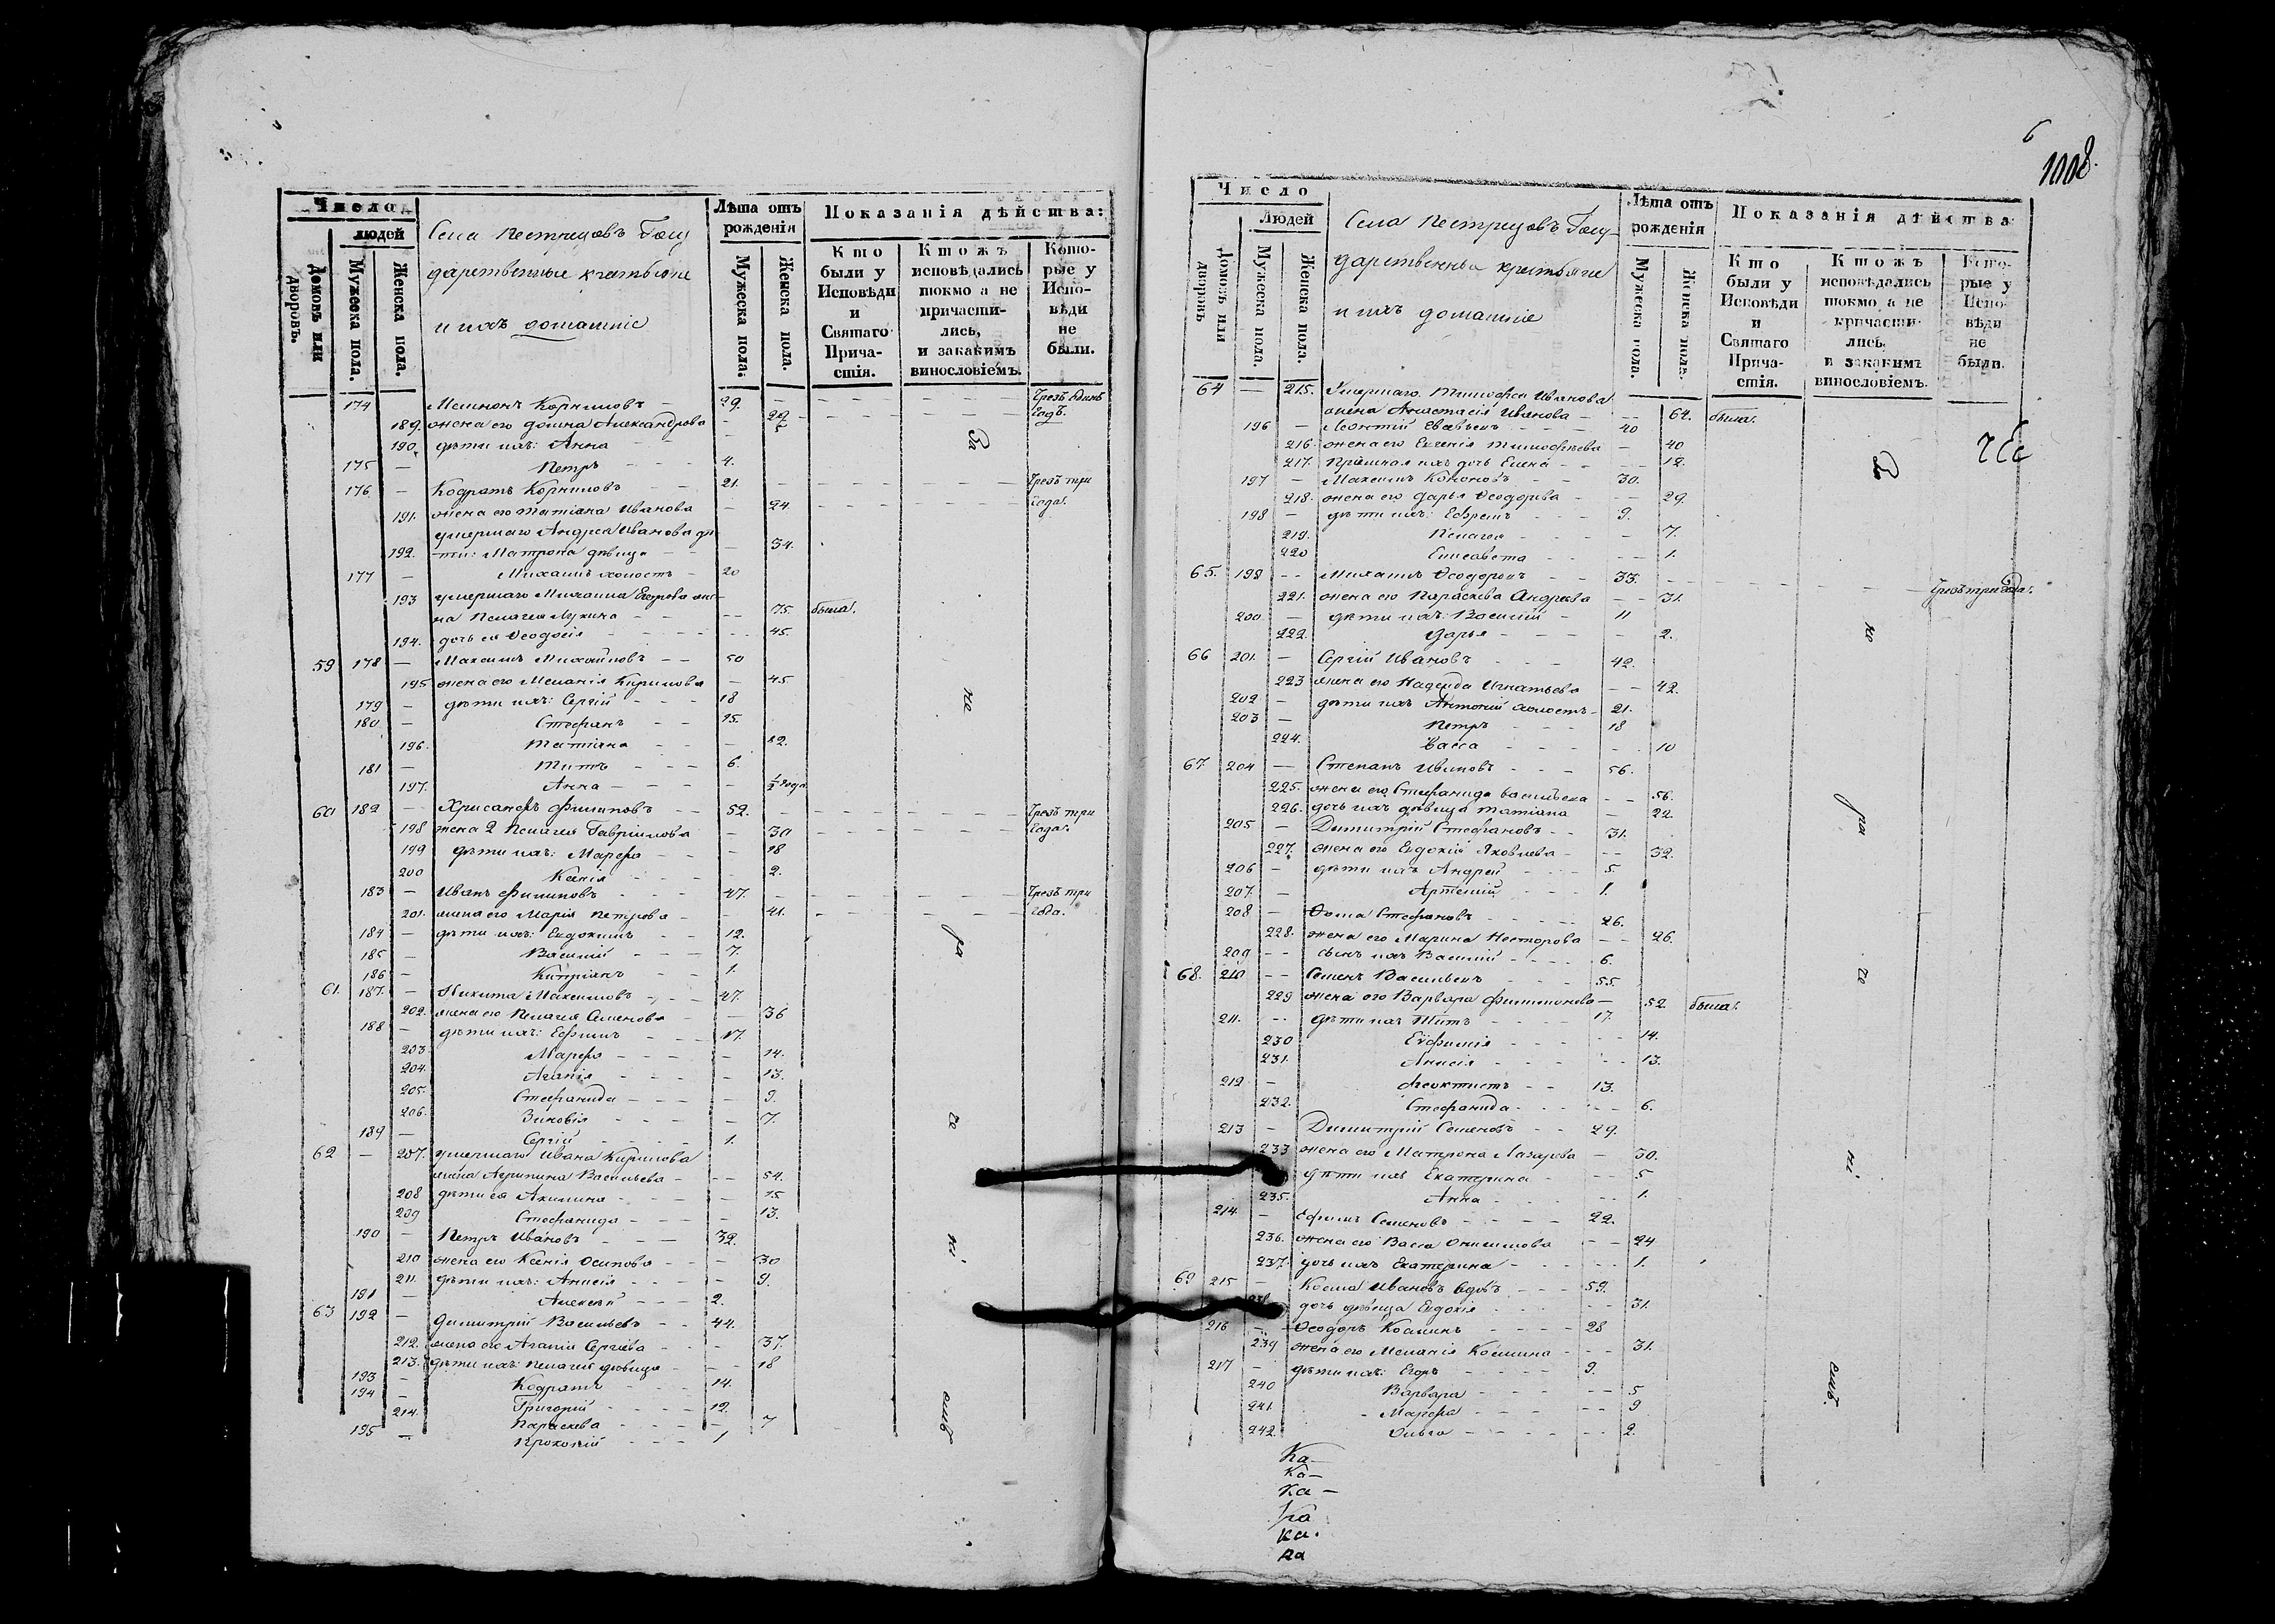 Число
людей
Домовъ или дворовъ.
Мужеска пола.
Женска пола.
Села Пестрецовъ Госу
дарственные крестьяне
и ихъ домашніе
Лѣта отъ
рожденія
Мужеска пола.
Женска пола.
Показанія дѣйства:
Кто
были у
Исповѣди
и
Святаго
Прича-
стія.
Ктожъ
исповѣдались
токмо а не
причасти-
лись,
и закакимъ
винословіемъ.
Кото-
рые у
Испо-
вѣди
не
были.
174 — Корниловъ — 29. Чрезъ Одинъ
189. жена его Домна Александрова — 22 Годъ.
190. дѣти ихъ: Анна — 5
175 — Петръ — 4.
176 — Кодратъ Корниловъ — 21. Чрезъ три
191. жена его Татіана Иванова — 24. Года.
умершаго Андрея Иванова дѣ
192. ти: Матрона дѣвица — 34.
177 — Михаилъ холостъ — 20
193 умершаго Михаила Егорова же-
на Пелагея Лукина — 75. была.
194. дочь ея Ѳеодосія — 45.
59 178 — Максимъ Михайловъ — 50
195 жена его Меланія Кирилова — 45
179 — дѣти ихъ: Сергій — 18
180 — Стефанъ — 15.
196. Татіана — 12.
181 — Титъ — 6.
197. Анна — 1/2 года
60 182 — Хрисанфъ Филиповъ — 52. Чрезъ три
198 жена 2 Пелагея Гаврилова — 30 Года.
199 дѣти ихъ: Марфа — 18
200 Ксенія — 2.
183 — Иванъ Филиповъ — 47. Чрезъ три
201. жена его Марія Петрова — 41. Года.
184 — дѣти ихъ: Евдокимъ — 12.
185 — Василій — 7.
186 — Кипріанъ — 1.
61. 187. — Никита Максимовъ — 47.
202. жена его Пелагея Семенова — 36
188 — дѣти ихъ: Ефимъ — 17.
203 Марфа — 14.
204. Агапія — 13.
205. Стефанида — 9.
206. Зиновія — 7.
189 — Сергій — 1.
62 — 207. умершаго Ивана Кирилова
жена Агрипина Васильева — 54.
208 дѣти ея Акилина — 15
209 Стефанида — 13.
190 — Петръ Ивановъ — 32.
210 жена его Ксенія Осипова — 30
211. дѣти ихъ: Анисія — 9.
191 — Алексѣй — 2.
63 192 — Димитрій Васильевъ — 44.
212. жена его Агапія Сергѣева — 37.
213. дѣти ихъ: Пелагея дѣвица — 18
193 — Кодратъ — 14.
194 — Григорій — 12.
214. Параскева — 7
195 — Прокопій — 1
За
ма
ра
че
ні
емъ
6
1008.
Число
Людей
Домовъ или дворовъ
Мужеска пола.
Женска пола.
Села Пестрецовъ Госу-
дарственныя крестьяне
и ихъ домашніе
Лѣта отъ
рожденія
Мужеска пола.
Женска пола.
Показанія дѣйства
Кто
были у
Исповѣди
и
Святаго
Прича-
стія.
Ктожъ
исповѣдались
токмо а не
причасти-
лись,
и закакимъ
винословіемъ.
Кото-
рые у
Испо-
вѣди
не
были.
64 — 215. Умершаго Тимофея Иванова
жена Анастасія Иванова — 64. была.
196 — Леонтій — 40
216. жена его Евгенія Тимофѣева — 40
217. дочь Елена — 12.
197 — Максимъ Кононовъ — 30.
218. жена его Дарья Ѳеодорова — 29.
198 — дѣти ихъ: Ефремъ — 9.
219. Пелагея — 7.
220 Елисавета — 1.
65. 198 — Михаилъ Ѳеодоровъ — 33. Чрезъ три Года.
221. жена его Параскева Андреева — 31.
200 — дѣти ихъ: Василій — 11
222. Дарья — 2.
66 201. — Сергій Ивановъ — 42.
223 жена его Надежда Игнатьева — 42.
202 — дѣти ихъ Антоній холостъ — 21.
203 — Петръ — 18
224. Васса — 10
67 204 — Степанъ Ивановъ — 56.
225. жена его Стефанида Васильева — 56.
226. дочь ихъ дѣвица Татіана — 22
205 — Димитрій Стефановъ — 31.
227. жена его Евдокія Яковлева — 32.
206 — дѣти ихъ Андрей — 5
207. — Артемій — 1.
208 — Ѳома Стефановъ — 26.
228. жена его Марина Несторова — 26.
209 — сынъ ихъ Василій — 6.
68. 210 — Семенъ Васильевъ — 55.
229 жена его Варвара Филимонова — 52. была.
211. — дѣти ихъ Титъ — 17.
230 Евфимія — 14.
231. Анисія — 13.
212 — Феоктистъ — 13.
232. Стефанида — 6.
213 — Димитрій Семеновъ — 29.
233 жена его Матрона Лазарева — 30.
дѣти ихъ Екатерина — 5
235. Анна — 1.
214 — Ефимъ Семеновъ — 22.
236. жена его Васса Онисимова — 24
237. дочь ихъ Екатерина — 1.
69 215 — Косма Ивановъ вдовъ — 59.
238 дочь дѣвица Евдокія — 31.
216 — Ѳеодоръ Косминъ — 28
239 жена его Меланія Космина — 31.
217 — дѣти ихъ: Егоръ — 9.
240 Варвара — 5
241. Марфа — 9
242. Ольга — 2.
За
ма
ра
че
ні
емъ.
Ка—
Ка—
Ка—
Ка
Ка.
Ка